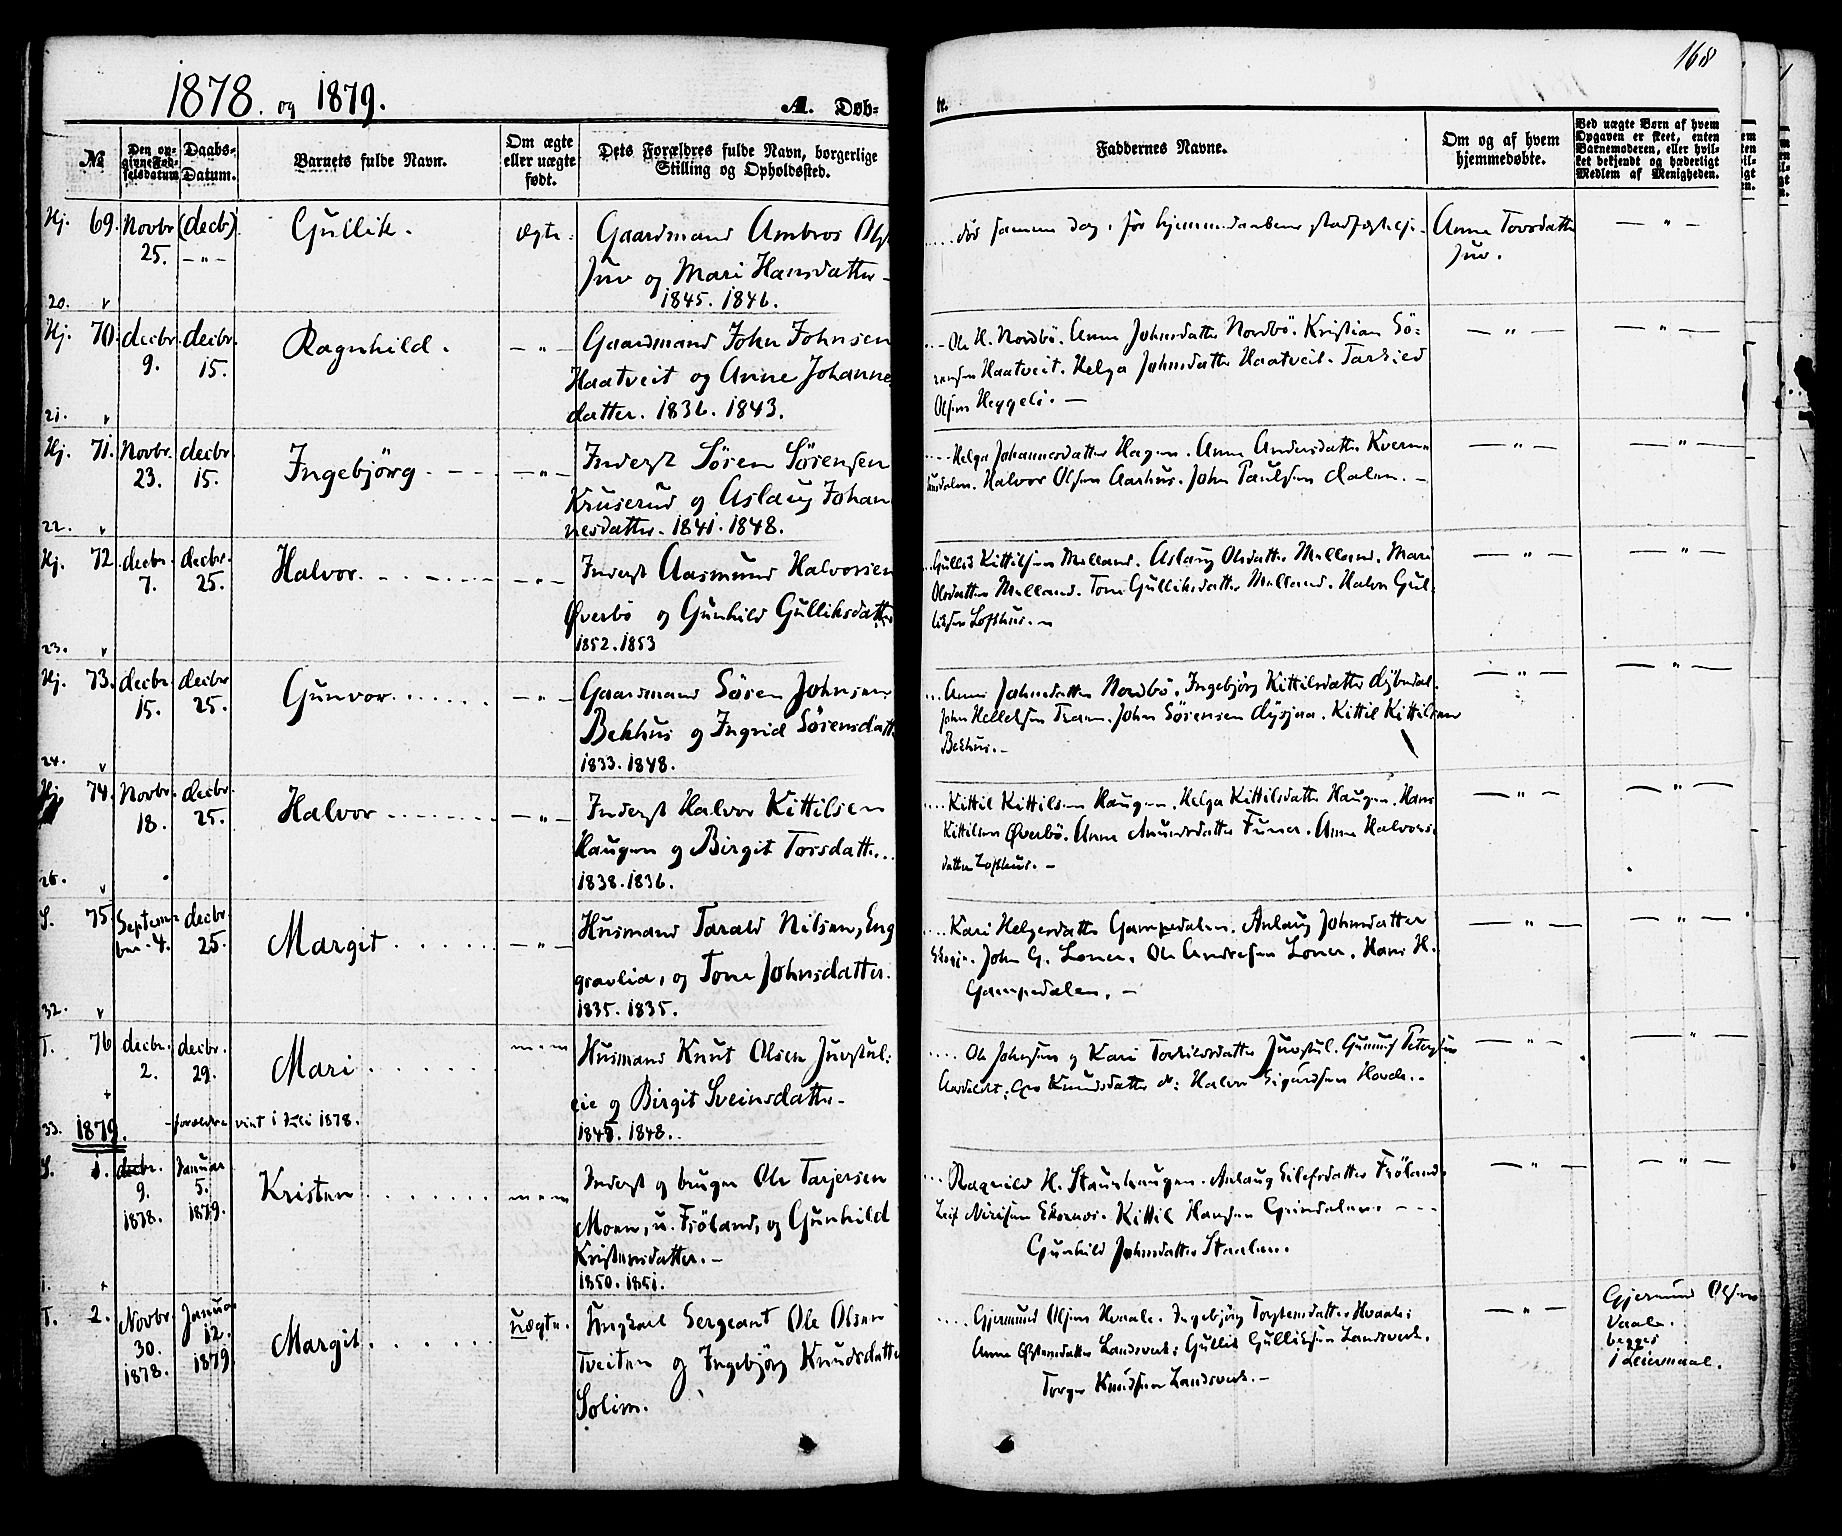 168
1878. og 1879.
A. Døb-
te.
№
Den op-
givne Fød-
selsdatum
Daabs-
Datum.
Barnets fulde Navn.
Om ægte
eller uægte
født.
Dets Forældres fulde Navn, borgerlige
Stilling og Opholdssted.
Faddernes Navne.
Om og af hvem
hjemmedøbte.
Ved uægte Børn af hvem
Opgaven er skeet, enten
Barnemoderen, eller hvil-
ket bekjendt og hæderligt
Medlem af Menigheden.
Hj. 69. Novbr 25. (decb.) — " —
Gullik.
ægte.
Gaardmand Ambros Ols
Juv og Mari Hansdatter -
1845. 1846.
død samme dag, før hjemmedaabens stadfæstelse.
Anne Torsdatter
Juv.
— " —
20. v
Hj. 70. decbr. 9. decbr. 15.
Ragnhild.
— " —
Gaardmand John Johnsen
Haatveit og Anne Johannes
datter. 1836. 1843.
Ole H. Nordbö. Anne Johnsdatter Nordbö. Kristian Sö-
rensen Haatveit. Helga Johnsdatter Haatveit. Tarkied
Olsen Heggeli. —
— " —
— " —
21. v
Hj. 71. Novbr. 23. decbr 15.
Ingebjörg.
— " —
Inderst Sören Sörensen
Kruserud og Aslaug Johan
nesdatter. 1841. 1848.
Helga Johannesdatter Hagen. Anne Andersdatter Kvern-
husdalen. Halvor Olsen Aarhus. John Paulsen Dalen. —
— " —
— " —
22. v
Hj. 72. decbr. 7. decbr. 25.
Halvor.
— " —
Inderst Aasmund Halvorsen
Øverbö og Gunhild Gulliksdatter
1852. 1853
Gullik Kittilsen Melland. Aslaug Olsdatter Melland. Mari
Olsdatter Melland. Tone Gulliksdatter Melland. Halvor Gul-
liksen Lofthus. —
— " —
— " —
23. v
Hj. 73. decbr. 15. decbr 25.
Gunvor.
— " —
Gaardmand Sören Johnsen
Bekhus og Ingrid Sörensdatt.
1833. 1848.
Anne Johnsdatter Nordbö. Ingebjörg Kittilsdatter Dybedal.
John Kittil Kittilsen
Bekhus. —
— " —
— " —
24. v
Hj. 74. Novbr. 18. decbr 25.
Halvor
— " —
Inderst Halvor Kittilsen
Haugen og Birgit Torsdatte..
1838. 1836.
Kittil Kittilsen Haugen. Helga Kittilsdatter Haugen. Hans
Kittilsen Øverbö. Anne Amundsdatter Funer. Anne Halvors-
datter Lofthus. —
— " —
— " —
v
S. 75. Septem-
ber 4. decbr. 25.
Margit
— " —
Husmand Tarald Nilsen, Eng
gravlia, og Tone Johnsdatter.
1835. 1835.
Kari Helgesdatter Gampedalen. Anlaug Johnsdatter
John G. Loner. Ole Andresen Loner. Hans H.
Gampedalen. —
— " —
— " —
32. v
T. 76 decbr. 2. decbr. 29.
Mari
— " —
Husmand Knut Olsen Juvstul-
eie og Birgit Sveinsdatter -
1845. 1848.
Ole Johnsen og Kari Torkildsdatter Juvstul. Gunnuf Petersen
Knudsdatter do; Halvor Sigurdsen Hovde.
— " —
— " —
33.
1879.
viet i Juli 1878.
S. 1. decbr. 9. 1878. Januar 5. 1879.
Kristen
— " —
Inderst og bruger Ole Tarjersen
Moen, u. Fröland, og Gunhild
Kristensdatter. —
1850. 1851.
Ragnild H. Staurhaugen. Anlaug Eilefsdatter Fröland.
Leif Kittil Hansen Grindalen.
Gunhild Johnsdatter Staalen.
— " —
— " —
1.
T. 2. Novbr 30. 1878. Januar 12. 1879
Margit.
uægte.
Ungkarl Sergeant Ole Olsen
Tveiten og Ingebjörg Knudsdatter
Solim.
Gjermund Olsen Hvaale. Ingebjörg Torstensdatter Hvaale;
Anne Østensdatter Landsverk; Gullik Gulliksen Landsverk.
Torger Knudsen Landsverk. —
— " —
Gjermund Olsen
Vaale.
begges
1 Leiermaal.